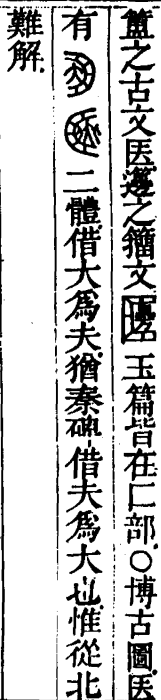 簠之古文邊之籀文玉篇皆在匚部○博古圖
有二體借大爲夫猶秦碑借夫爲大也惟從北
難解